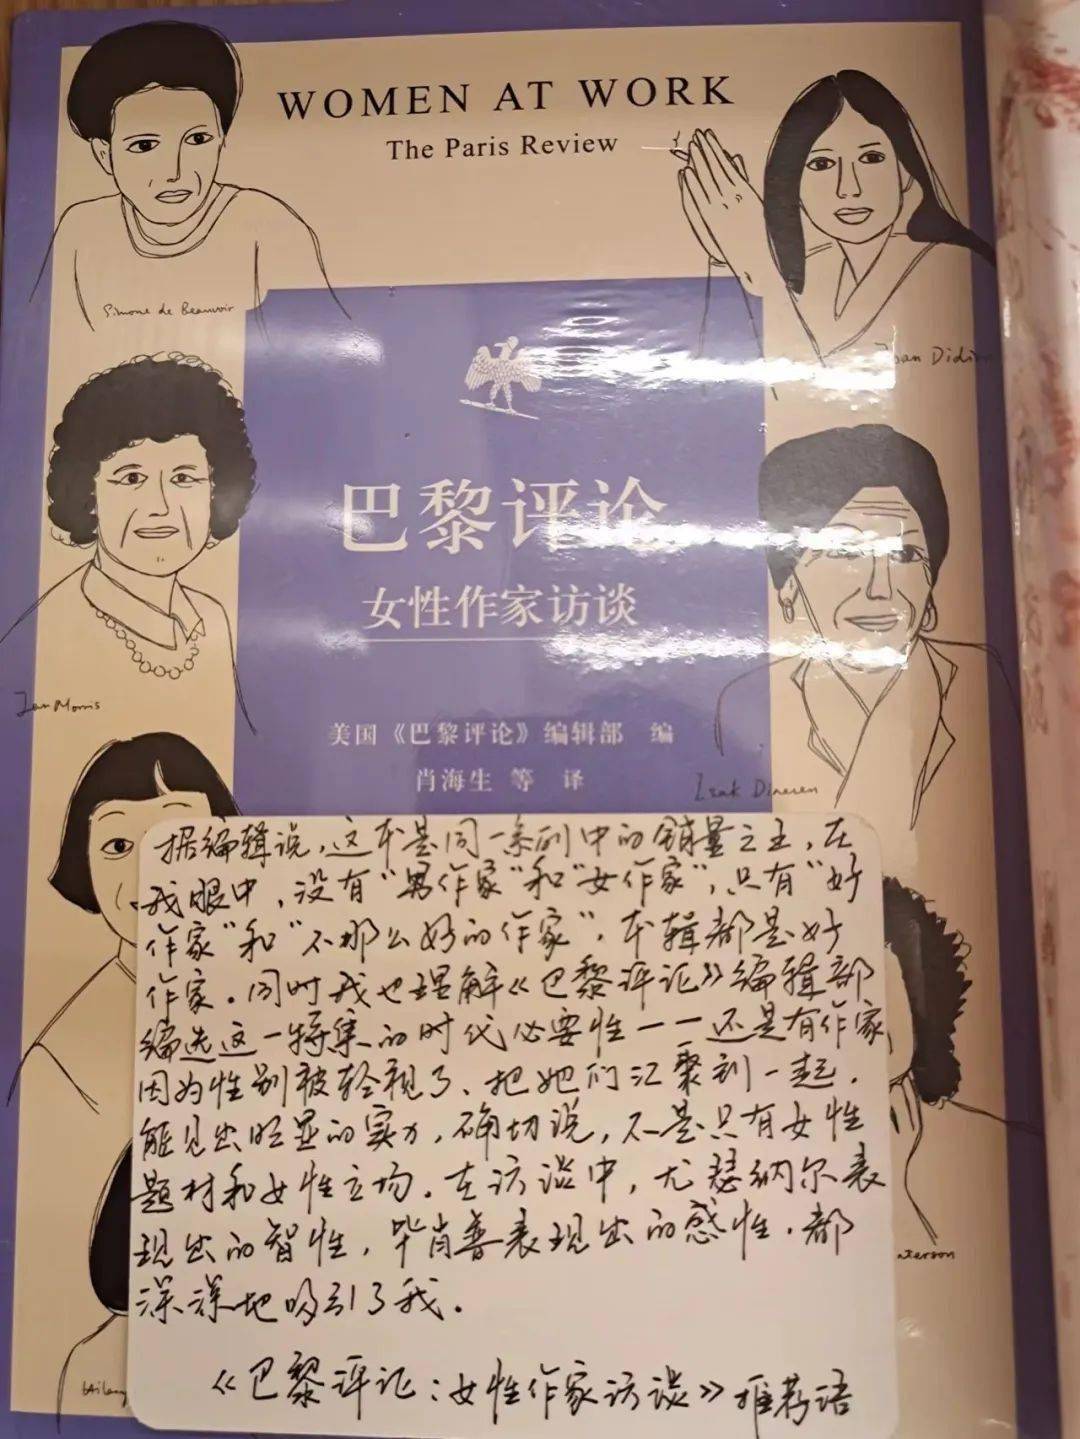 WOMEN AT WORK
The Paris Review
Simone de Beauvoir
Joan Didion
巴黎评论
女性作家访谈
Jan Morris
美国《巴黎评论》编辑部 编
肖海生 等 译
Isak Dinesen
据编辑说，这本是同一系列中的销量之王，在
我眼中，没有“男作家”和“女作家”，只有“好
作家”和“不那么好的作家”，本辑都是好
作家。同时我也理解《巴黎评论》编辑部
编选这一特集的时代必要性——还是有作家
因为性别被轻视了、把她们汇聚到一起，
能见出明显的实力，确切说，不是只有女性
题材和女性立场。在访谈中，尤瑟纳尔表
现出的智性，毕肖普表现出的感性，都
深深地吸引了我。
aterson
Hilary
《巴黎评论：女性作家访谈》推荐语